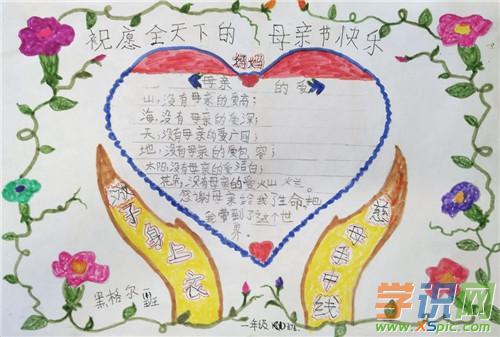 祝愿全天下的 母亲节快乐
妈妈
《母亲 的爱》
山，没有母亲的爱高；
海，没有母亲的爱深；
天，没有母亲的爱广阔；
地，没有母亲的爱包容；
太阳，没有母亲的爱
花朵，没有母亲的爱
感谢母亲给我了生命，把
我带到了这个世
界。
游子身上衣
慈母手中线
黑格尔 班
一年级
学识网
www.XSpic.com